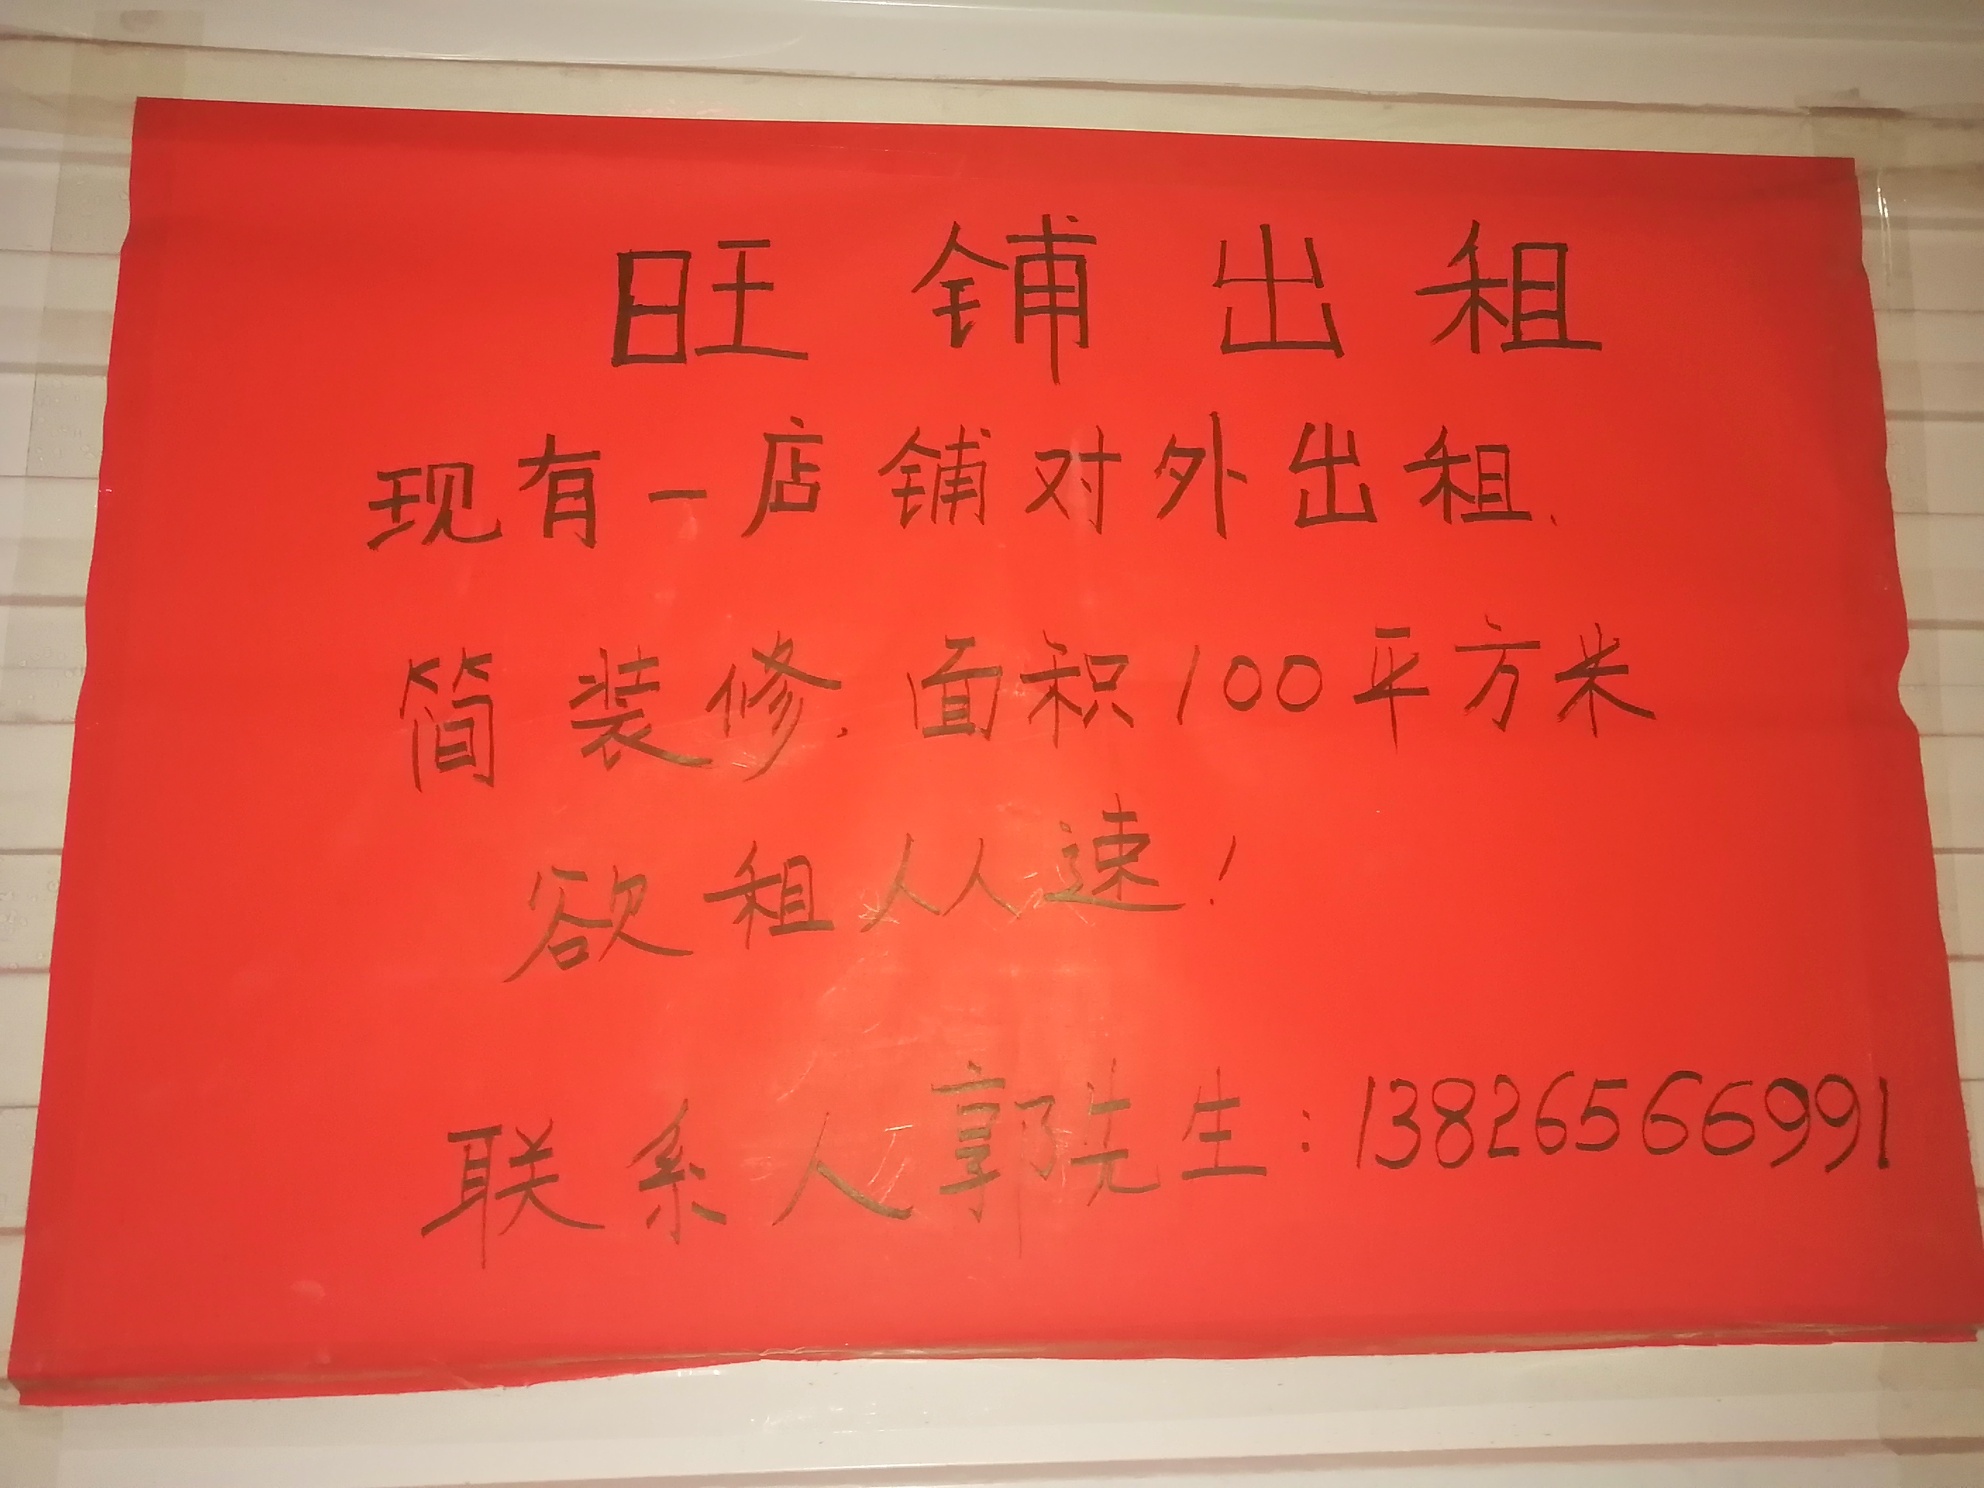 旺铺出租
现有一店铺对外出租.
简装修.面积100平方米
欲租从速!
联系人郭先生:13826566991